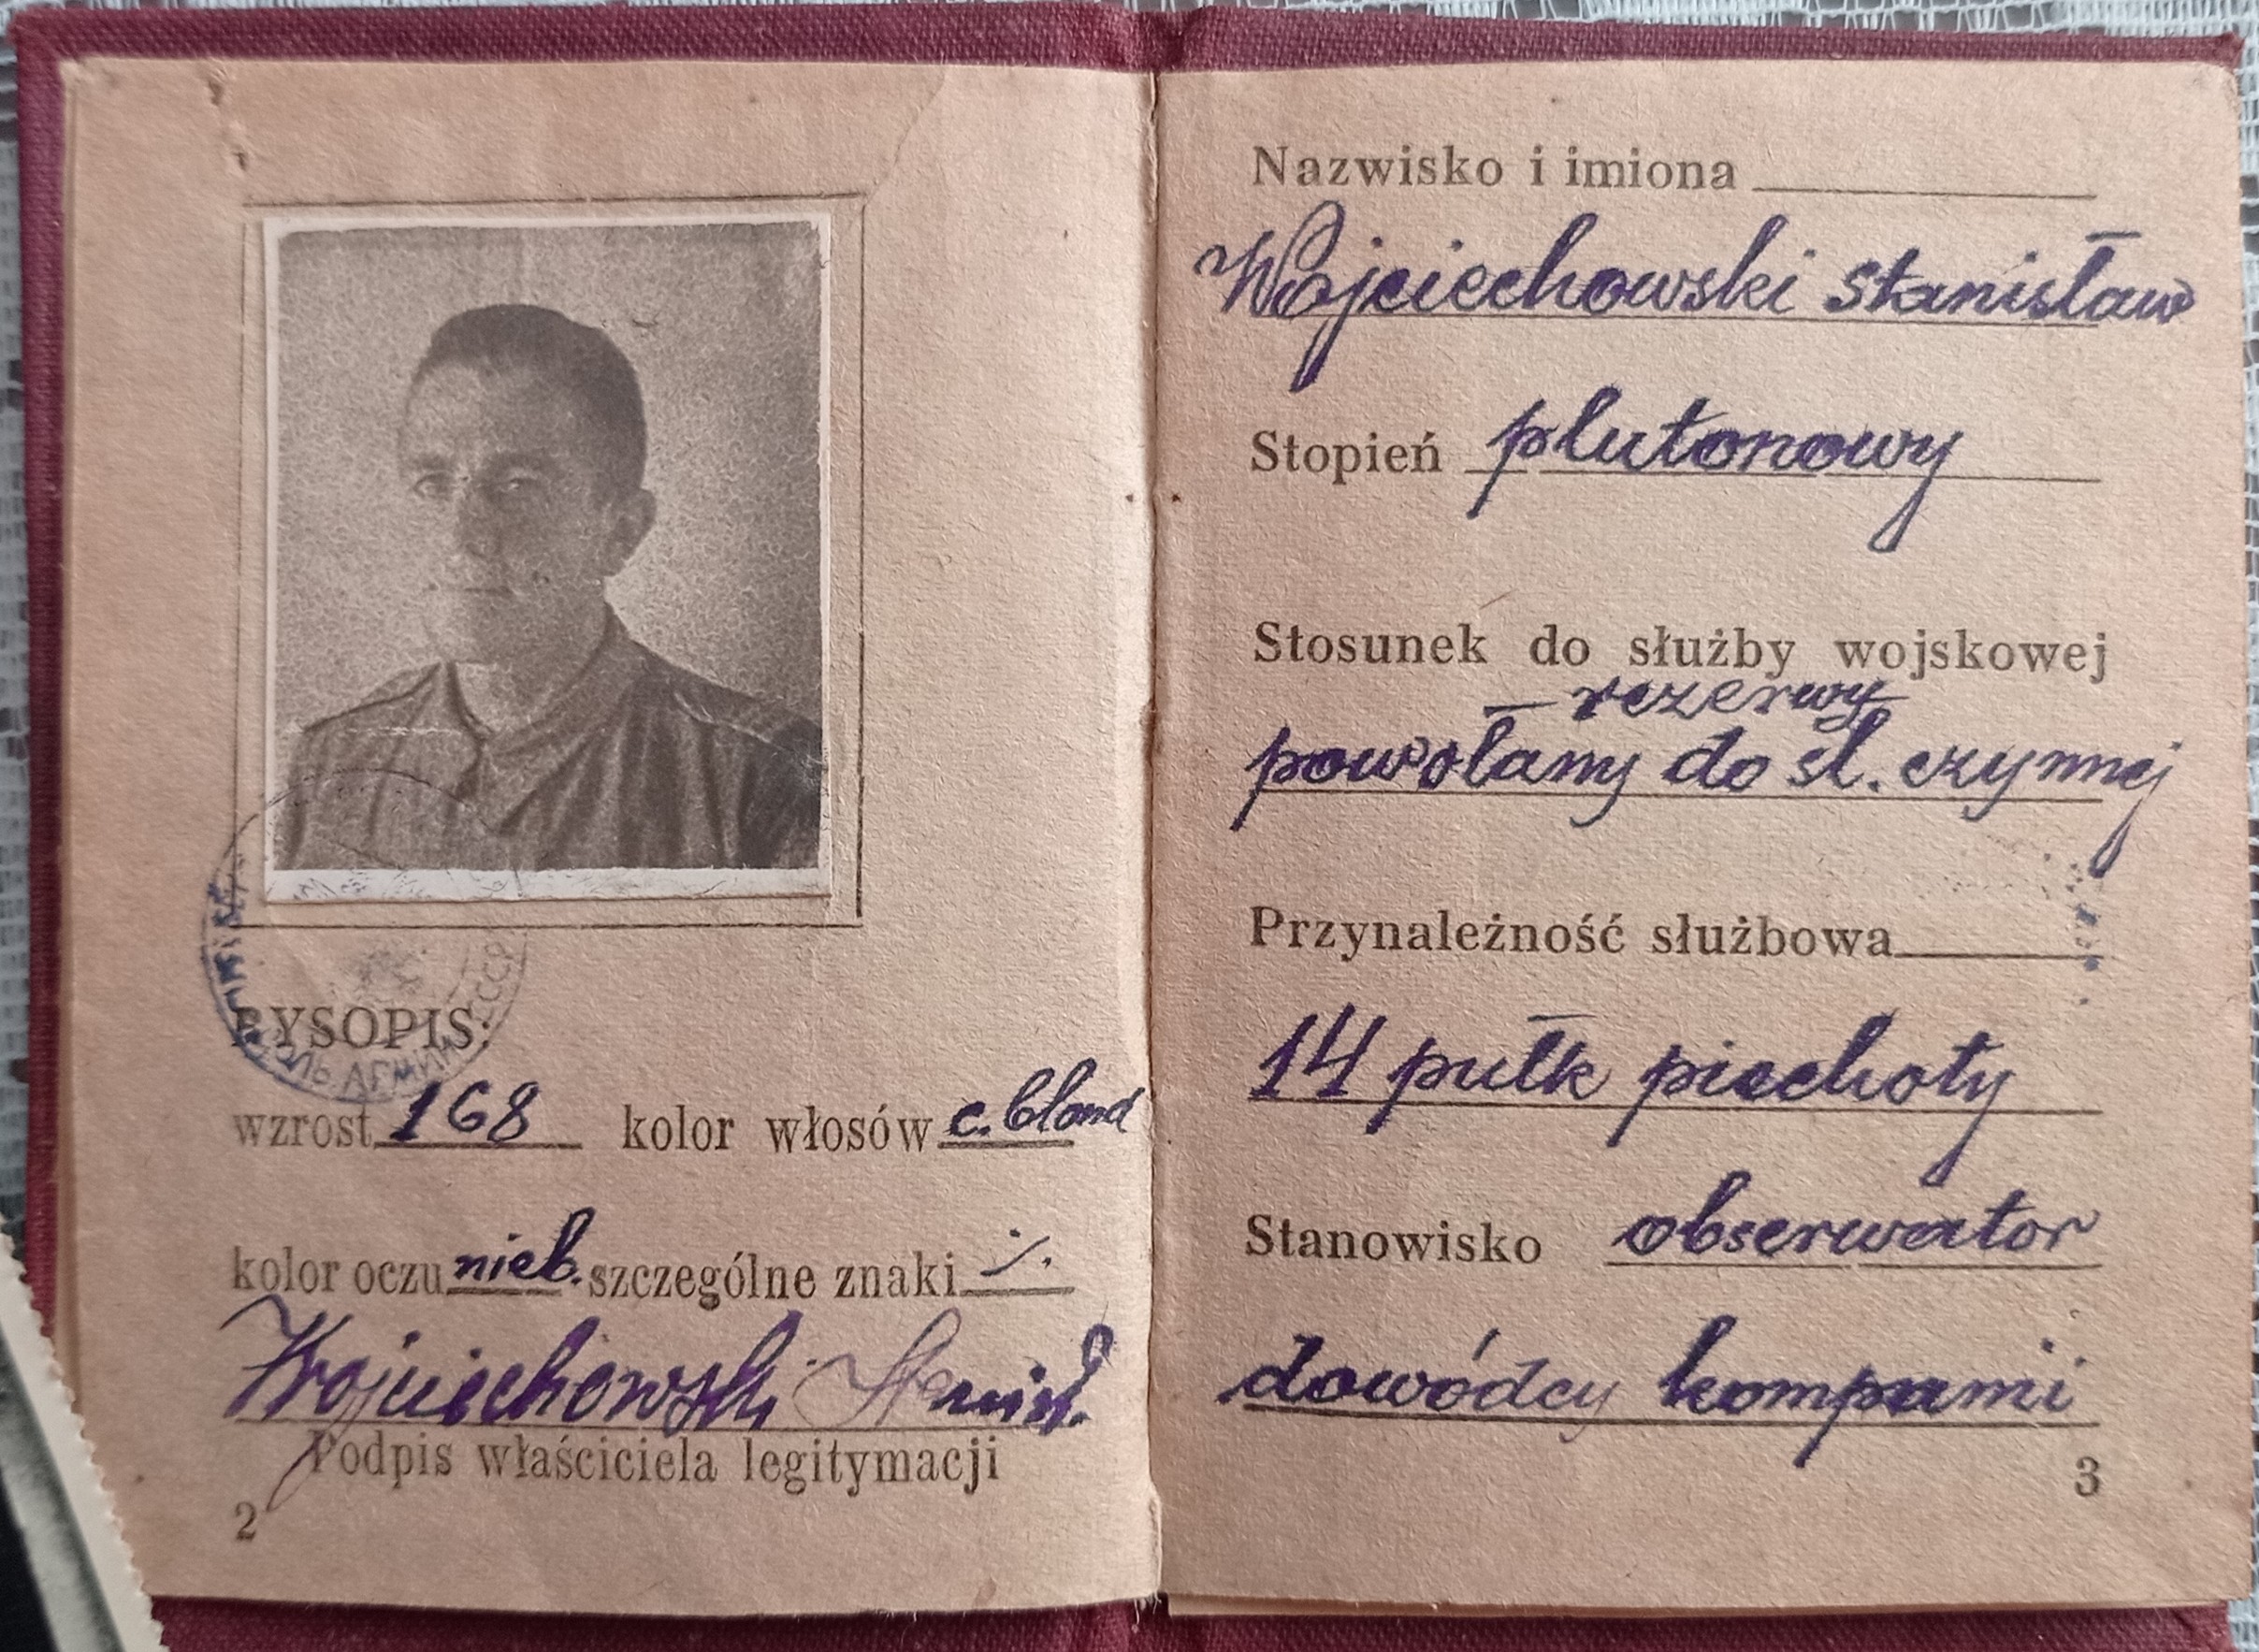 RYSOPIS:
wzrost 168 kolor włosów c. blond
kolor oczu nieb. szczególne znaki ./.
Wojciechowski Stanisł.
Podpis właściciela legitymacji
2
Nazwisko i imiona
Wojciechowski Stanisław
Stopień plutonowy
Stosunek do służby wojskowej
rezerwy
powołany do sł. czynnej
Przynależność służbowa
14 pułk piechoty
Stanowisko obserwator
dowódcy kompanii
3